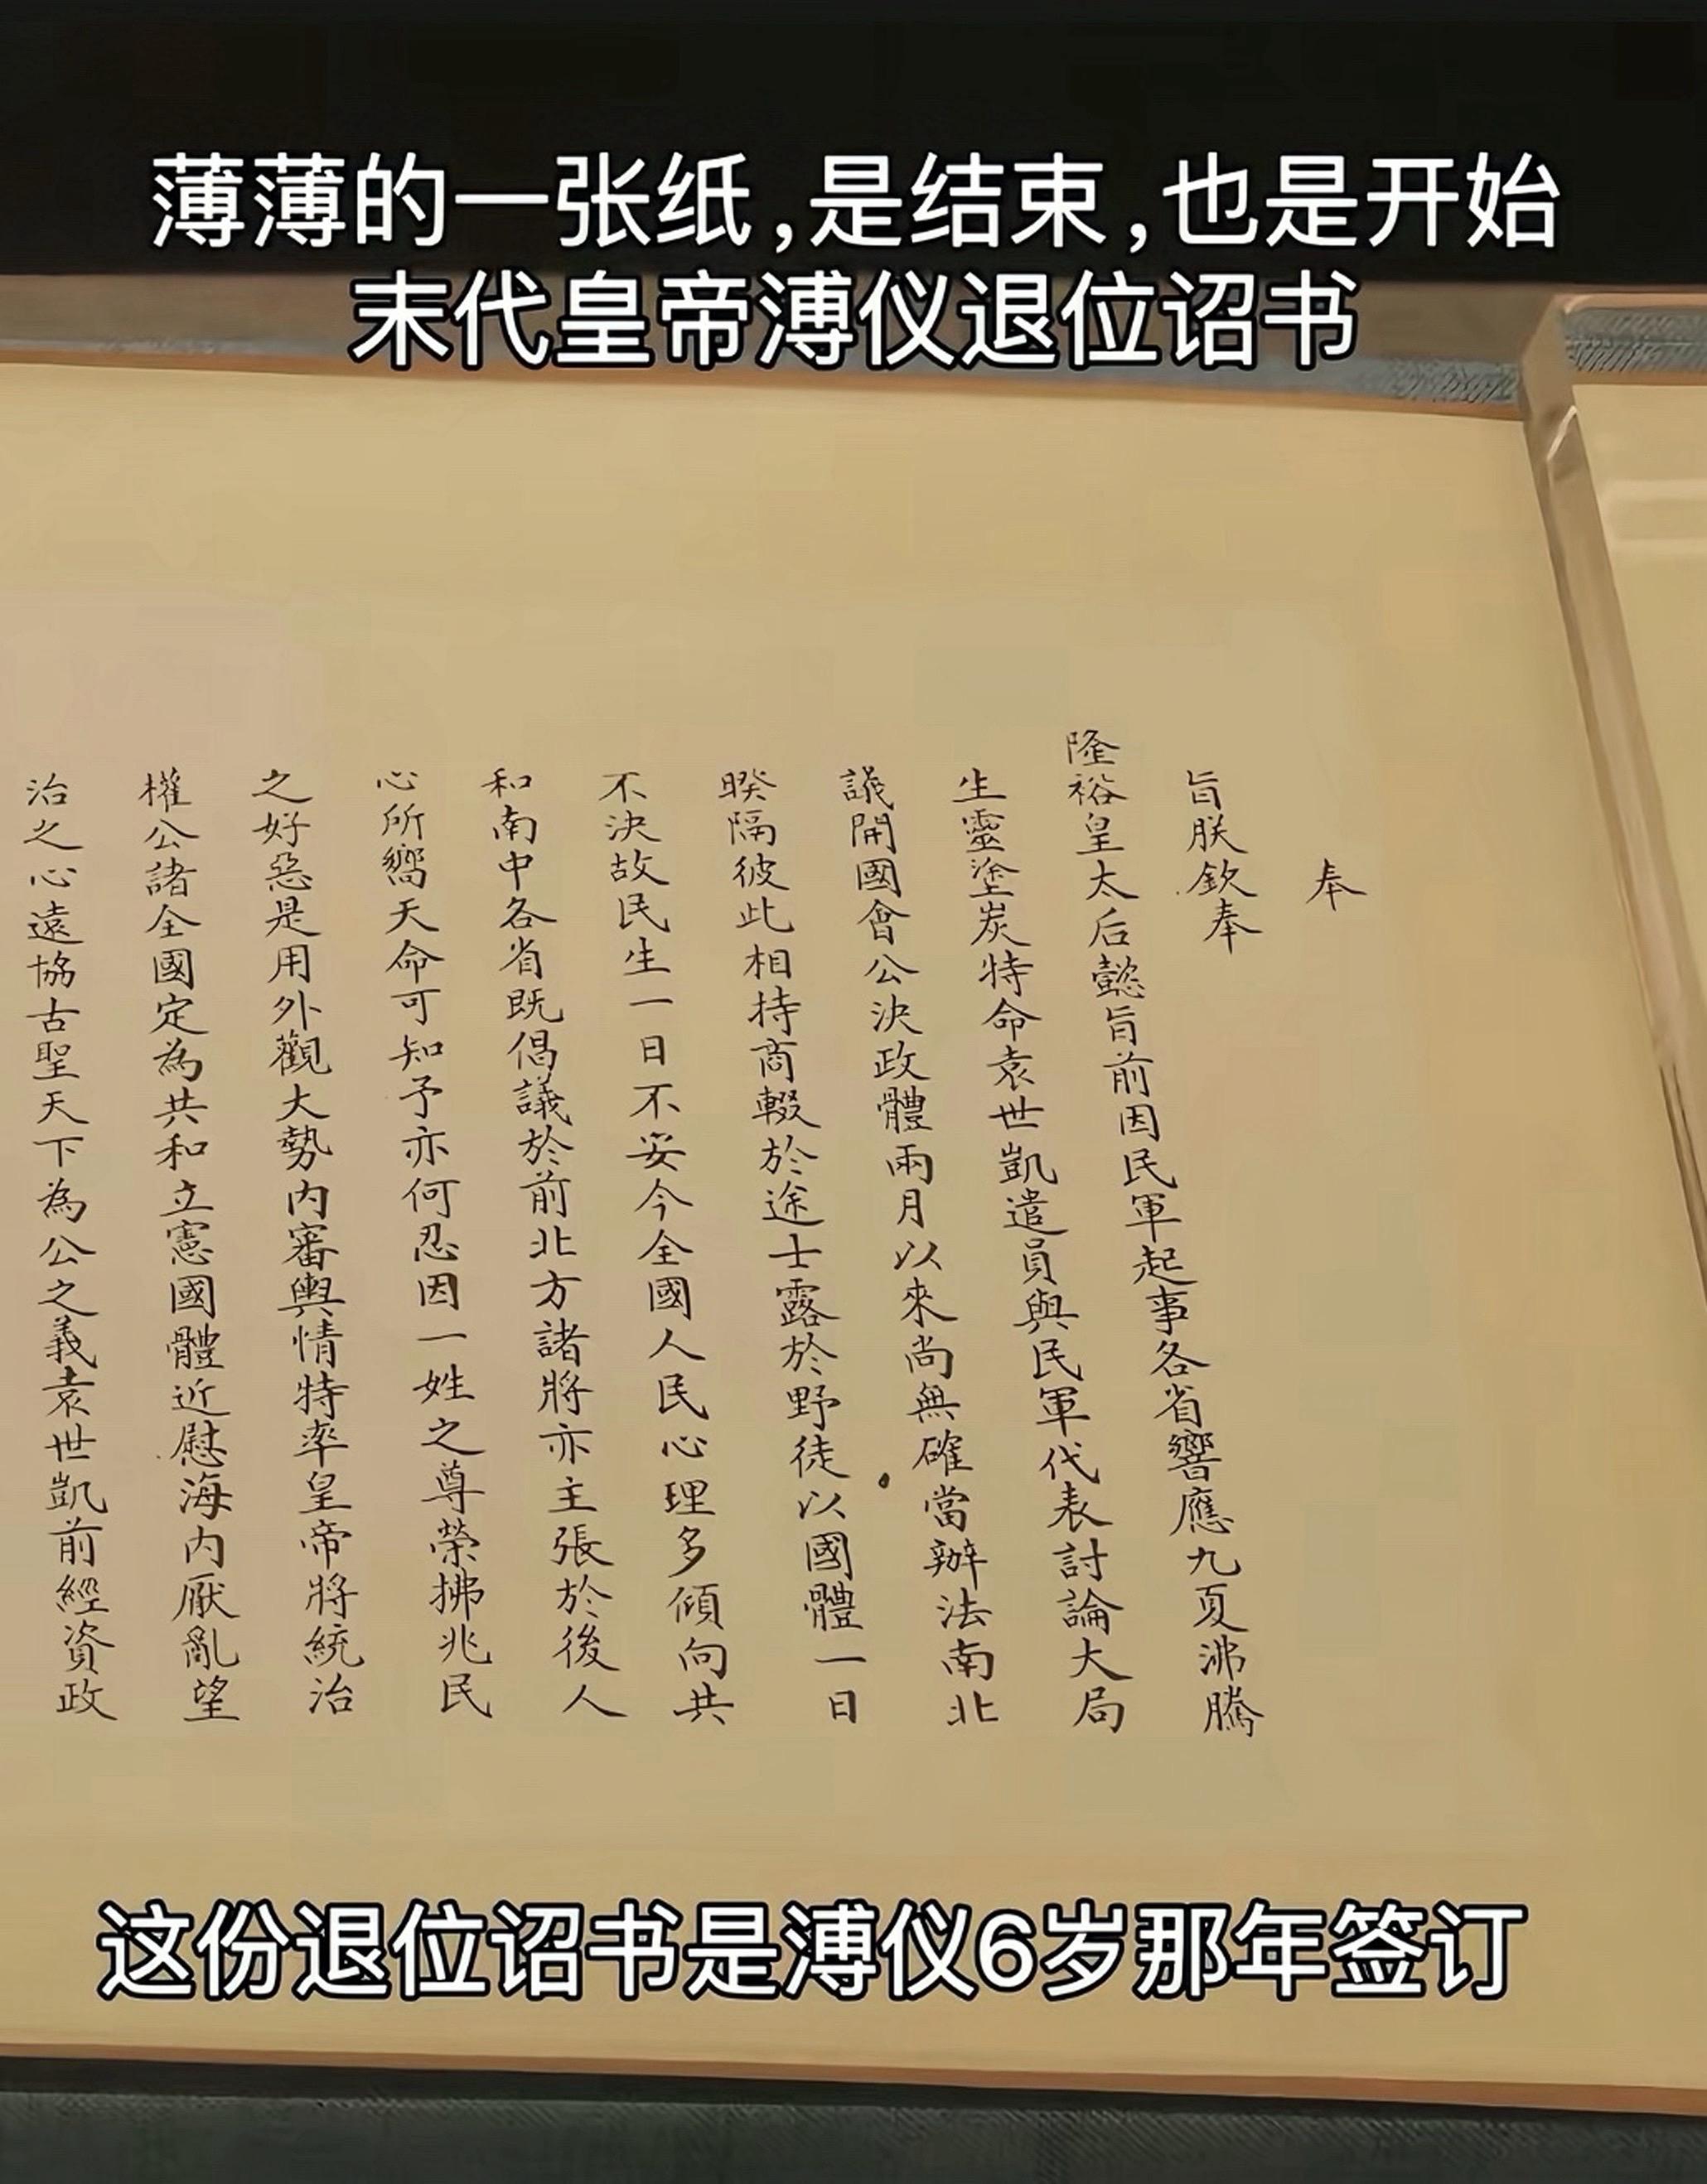 薄薄的一张纸,是结束,也是开始
末代皇帝溥仪退位诏书
奉
旨朕欽奉
隆裕皇太后懿旨前因民軍起事各省響應九夏沸騰
生靈塗炭特命袁世凱遣員與民軍代表討論大局
議開國會公決政體兩月以來尚無確當辦法南北
暌隔彼此相持商輟於途士露於野徒以國體一日
不決故民生一日不安今全國人民心理多傾向共
和南中各省既倡議於前北方諸將亦主張於後人
心所嚮天命可知予亦何忍因一姓之尊榮拂兆民
之好惡是用外觀大勢内審輿情特率皇帝將統治
權公諸全國定為共和立憲國體近慰海内厭亂望
治之心遠協古聖天下為公之義袁世凱前經資政
这份退位诏书是溥仪6岁那年签订